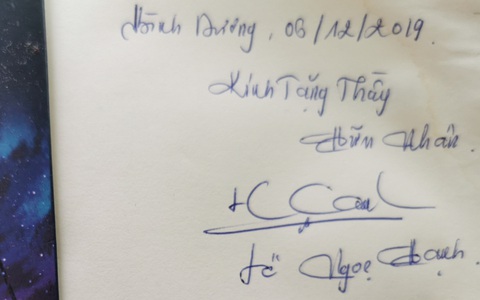 Bình Dương, 06/12/2019.
Kính Tặng Thầy
Hữu Nhân.
Ngọc